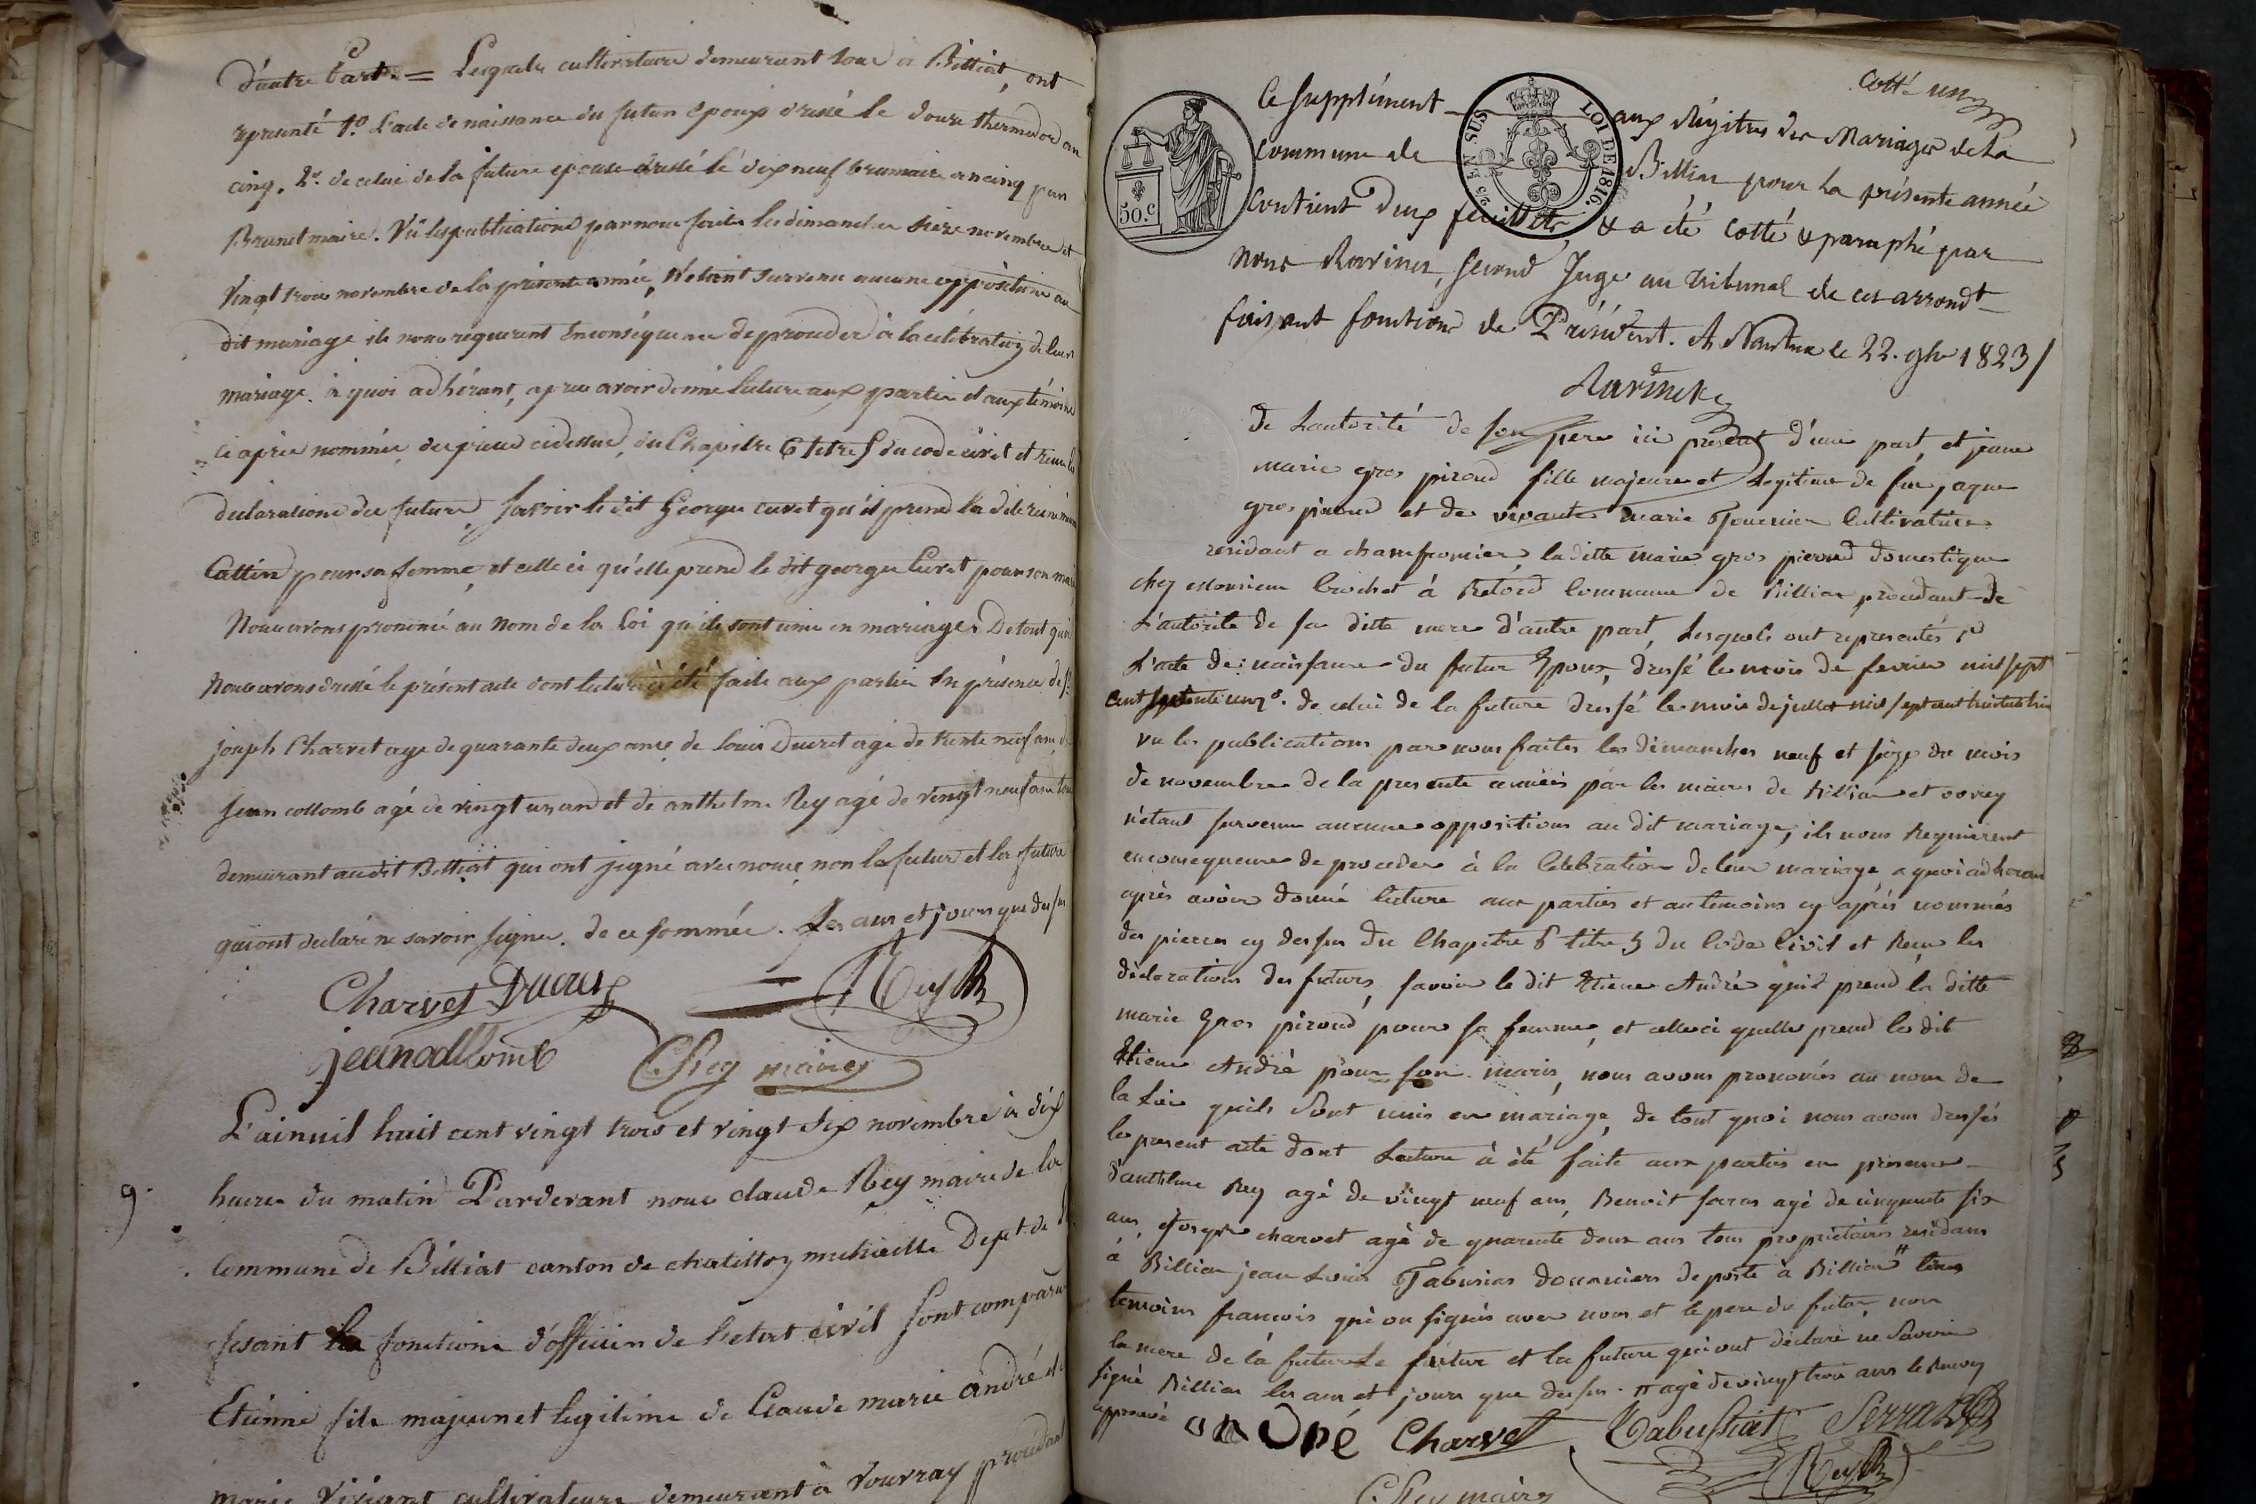 d'autre Part. = Lesquels cultivateurs demeurant tous à Billiat, ont
représenté 1º L'acte de naissance du futur époux dressé le douze thermidor an
cinq. 2º de celui de la future épouse dressé le dix neuf brumaire an cinq par
Brunet maire. Vû les publications par nous faites les dimanches seize novembre et
Vingt trois novembre de la présente année, N'étant survenu aucune opposition au
dit mariage ils nous requerent En conséquence de proceder à la célébration de leur
mariage. à quoi adhérant, après avoir donné lecture aux parties et aux témoins
ci après nommés, des pieces cidessus, du Chapitre 6 titre 5 du code civil et reçu les
déclarations des futurs, Savoir le dit George curet qu'il prend la dite
Cattin pour sa femme, et celle ci qu'elle prend le dit george Curet pour son mari
Nous avons prononcé au Nom de la Loi qu'ils sont unis en mariage. De tout quoi
Nous avons dressé le présent acte dont lecture à été faite aux parties En présence de Sr
joseph Charvet agé de quarante deux ans, de Louis Ducret agé de trente neuf ans de
Jean collomb agé de vingt un ans et de anthelme Rey agé de vingt neuf ans tous
demeurant audit Billiat qui ont signé avec nous, non le futur et la future
qui ont déclaré ne savoir signer. de ce sommés. Les ans et jours que dessus
Charvet Ducret Rey
jean collomb C Rey maire
L'an mil huit cent vingt trois et vingt six novembre à dix
9. heures du matin Pardevant nous claude Rey maire de la
Commune de Billiat canton de chatillon michaille Dept de
fesant les fonctions d'officier de l'etat civil Sont comparus
Etienne fils majeur et legitime de Claude marie andré et de
marie Vivians cultivateurs demeurant à Vouvray procedant
Cotté un
Ce supplément aux Régitres des Mariages de la
Commune de Billiat pour la présente année
Contient deux feuillets, & a été cotté & paraphé par
Nous Ravinet, Second Juge au tribunal de cet arrondt
faisant fonctions de Président. A Nantua le 22. 9bre 1823/
Ravinet
50.c
2/5 EN SUS LOI DE 1816
de L'autorité de son pere ici present d'une part, et jeanne
marie gros piroud fille majeure et Legitime de feu jaque
gros piroud et de vivante marie Tournier Cultivatrice
residant a chamfromier, la ditte marie gros piroud domestique
chez Monsieur Crochet à Retord Commune de Billiat procedant de
L'autorité de sa ditte mere d'autre part, Lesquels ont representés 1º
L'acte de naissance du futur Epoux, dressé le mois de fevrier mil sept
cent septante un 2º. de celui de la future dressé le mois de juillet mil sept cent huitante huit
vu les publications par nous faites les dimanches neuf et seize du mois
de novembre de la presente année par les maires de Billiat et vovray
n'etant survenu aucune oppositions au dit mariage, ils nous Requierent
en consequence de proceder à la Celebration de leur mariage a quoi adherant
après avoir donné lecture aux parties et au temoins cy après nommés
des pieces cy dessus du Chapitre 6 titre 5 du Code Civil et Reçu les
declarations des futurs, savoir le dit Etiene André qu'il prend la ditte
marie Gros piroud pour sa femme, et celle ci quelle prend le dit
Etiene André pour son maris, nous avons prononcés au nom de
la Loi quils Sont unis en mariage, de tout quoi nous avons dressés
le present acte dont Lecture à été faite aux parties en presence
d'anthelme Rey agé de vingt neuf ans, Benoit serras agé de cinquante six
ans, Joseph charvet agé de quarante deux ans tous proprietaires residans
à Billiat jean Louis Tabustat douaniers de poste à Billiat # tous
temoins francois qui on signés avec nous et le pere du futur, non
la mere de la future Le futur et la future qui ont déclaré ne Savoir
signé Billiat les ans et jours que dessus. # agé de vingt trois ans le Renvoy
approuvé anDRé Charvet Tabustat Serras
Rey
C Rey maire